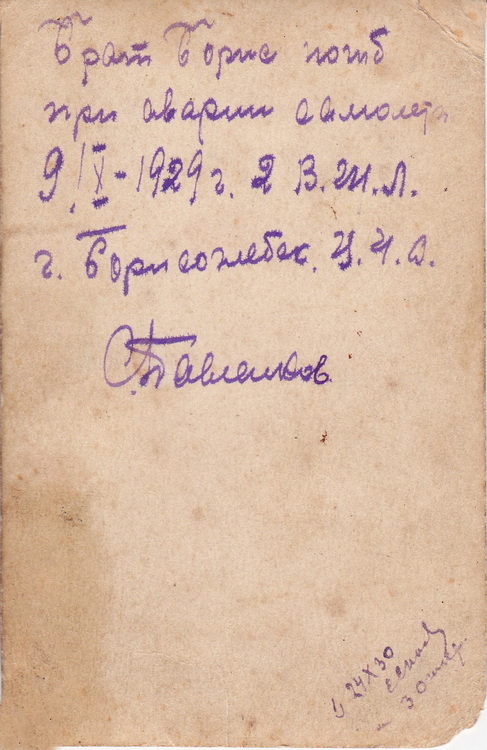 Брат Борис погиб
при аварии самолета
9/IX-1929 г. 2 В.Ш.Л.
г. Борисоглебск. Ц.Ч.О.
С. Павленков
1) 24X30